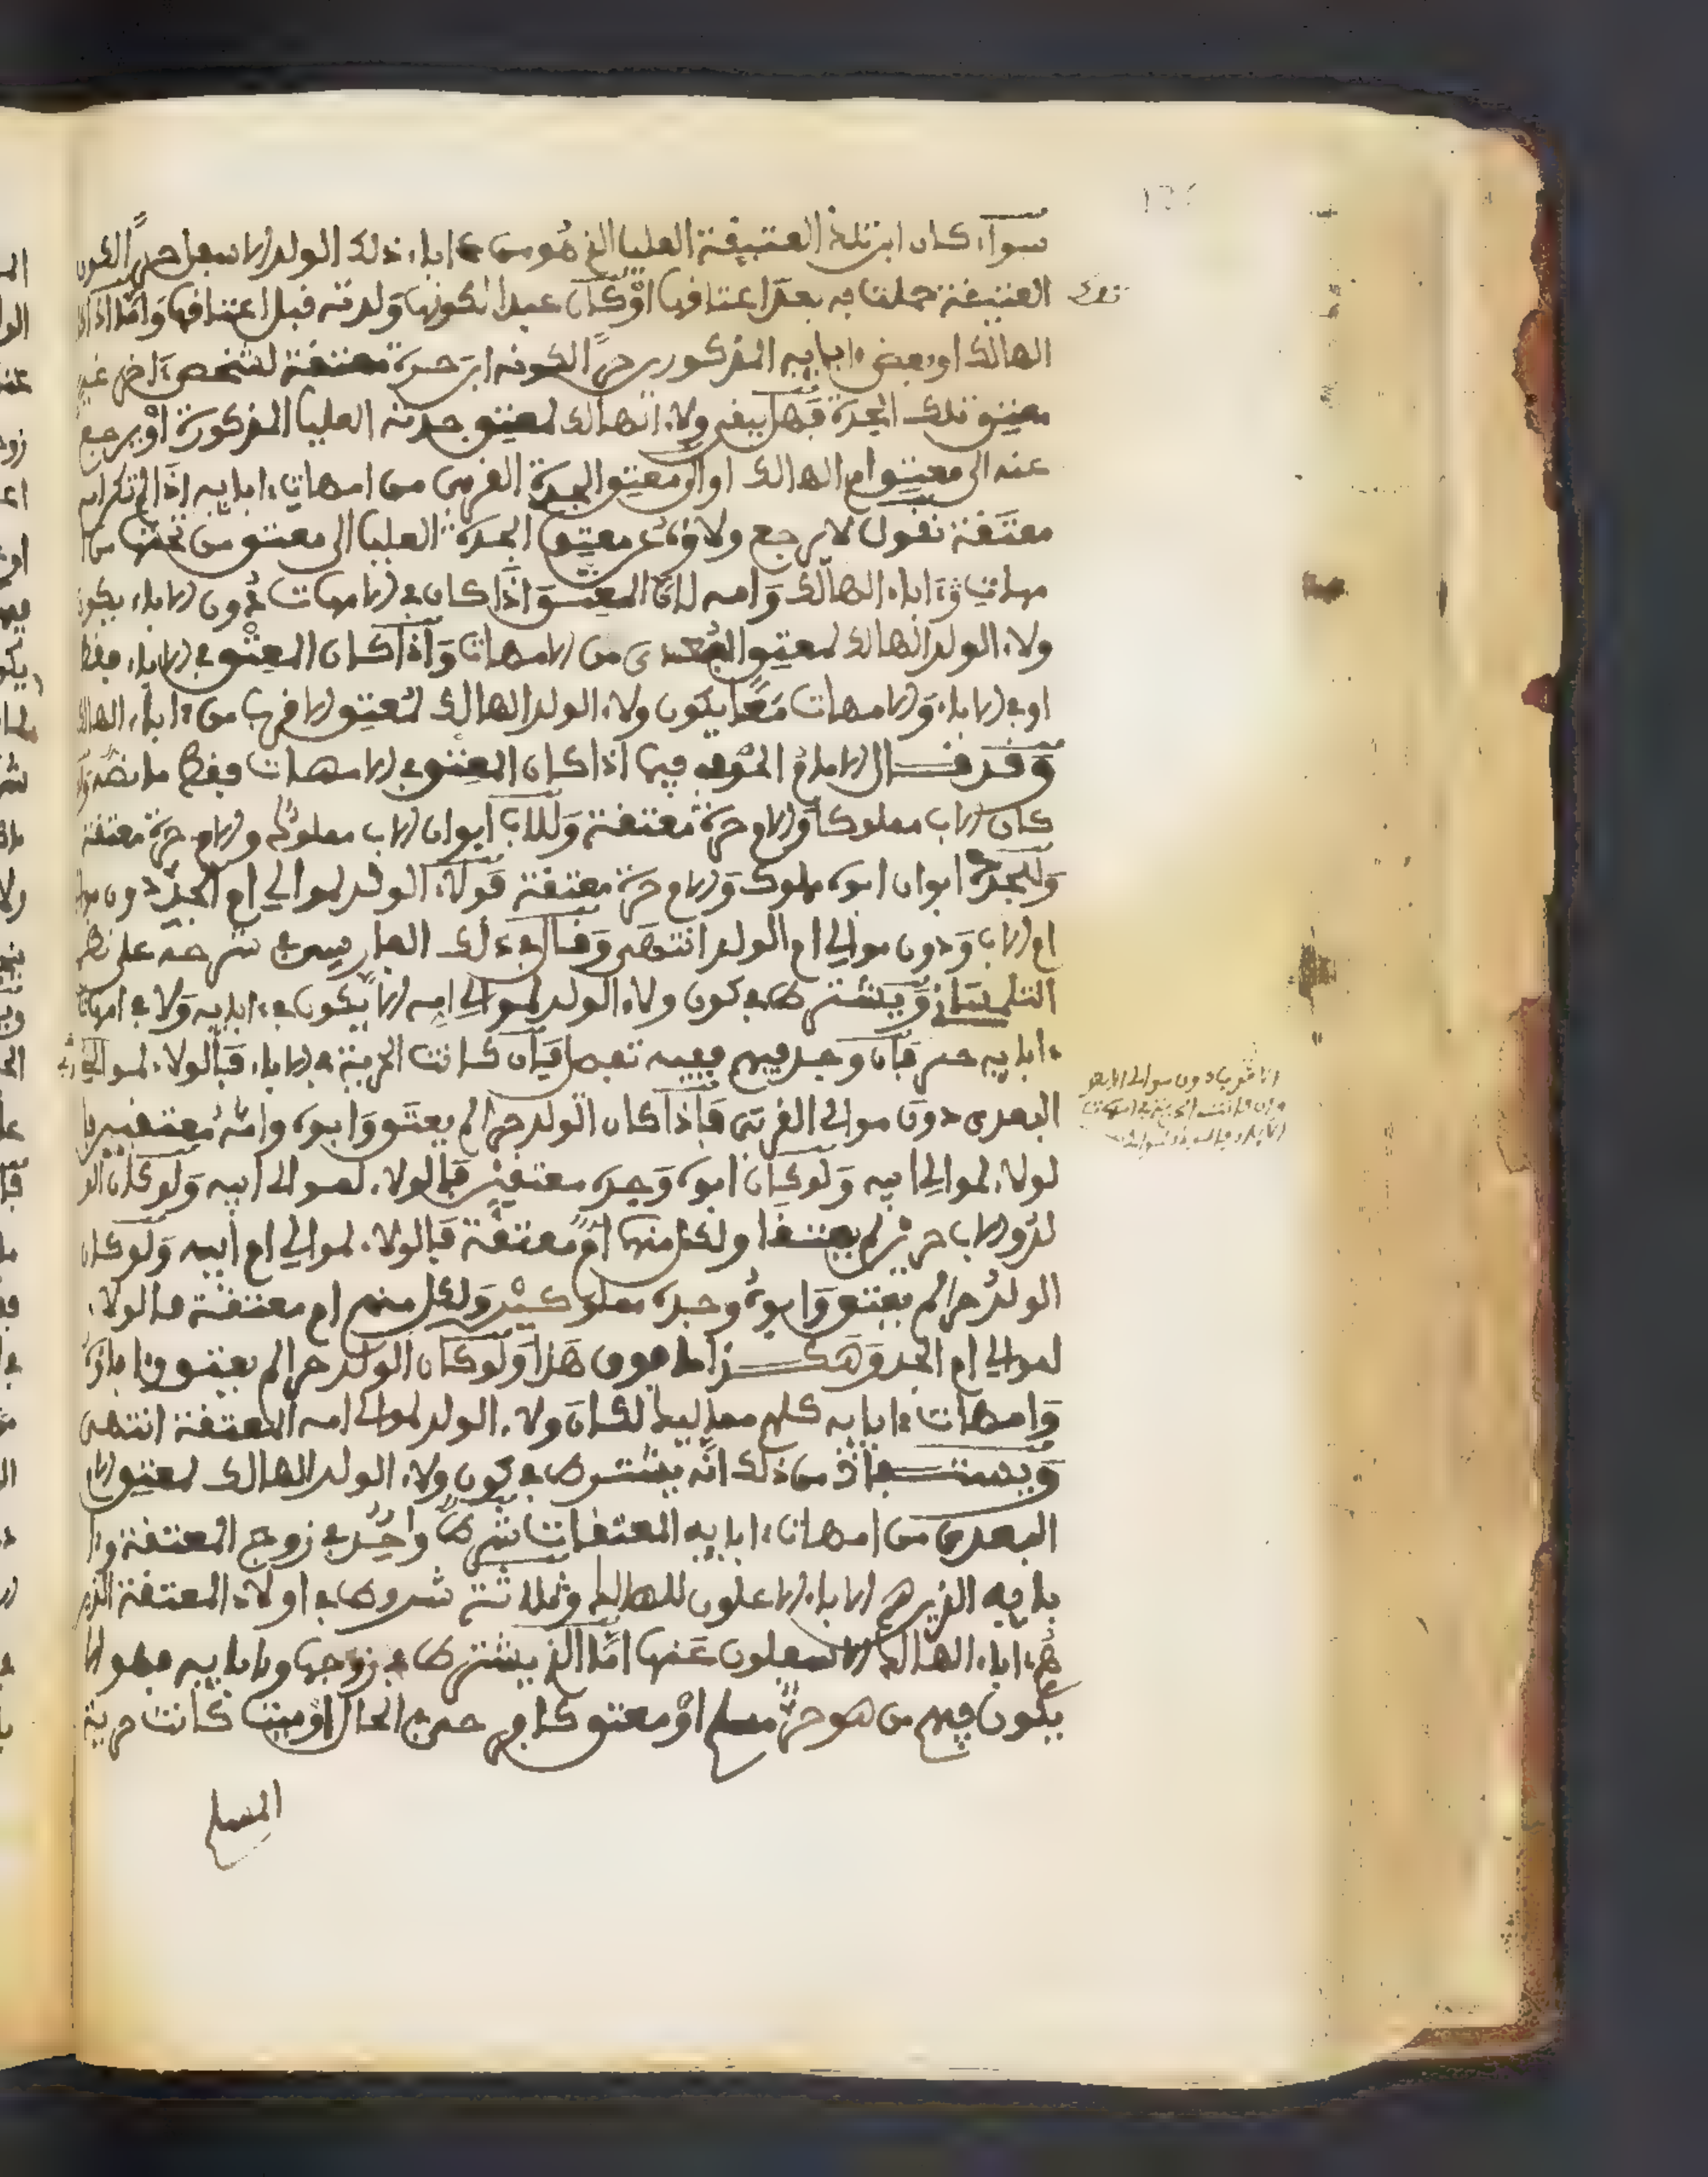 سواء كان ابن تلك العتيقة العليا الذي هو من اباء ذلك الولد الاسفل حرا لكون
العتيقة حملت به بعد اعتاقها او كان عبدا لكونها ولدته قبل اعتاقها واما اذا كا
الهالك او بعض ءابايه المذكورين حرا لكونه ابن حرة معتقة لشخص ءاخر غير
معتق تلك الجدة فهل يبقى ولاء الهالك لمعتق جدته العليا المذكورة او يرجع
عنه الى معتق ام الهالك او الى معتق الجدة القربى من امهات ءابايه اذا لم تكن امه
معتقة نقول لا يرجع ولاؤه عن معتق الجدة العليا الى معتق من تحتها من ا
مهات ءاباء الهالك وامه لان المعتق اذا كان في الامهات دون الاباء يكون
ولاء الولد الهالك لمعتق البعدى من الامهات واذا كان المعتق في الاباء فقط
او في الاباء والامهات معا يكون ولاء الولد الهالك لمعتق الاقرب من ءاباء الهالك
وقد قال الامام الحوفي فيما اذا كان العتق في الامهات فقط ما نصه ولو
كان الاب مملوكا والام حرة معتقة وللاب ابوان الاب مملوك والام حرة معتقة
وللجد ابوان ابوه مملوك والام حرة معتقة فولاء الولد لموالي ام الجد دون موا
ام الاب ودون موالي ام الولد انتهى وقال في ذلك الفارسي في شرحه على نظم
التلمساني ويشترط في كون ولاء الولد لموالي امه الا يكون في ءابايه ولا في امهات
ءابايه حر فان وجد فيهم ففيه تفصيل فان كانت الحرية في الاباء فالولاء لموالي
البعدى دون موالي القربى فاذا كان الولد حرا لم يعتق وابوه وامه معتقين فا
لولاء لموالي ابيه ولو كان ابوه وجده معتقين فالولاء لموالي ابيه ولو كان الو
لد والاب حرين لم يعتقا ولكل منهما ام معتقة فالولاء لموالي ام ابيه ولو كان
الولد حرا لم يعتق وابوه وجده مملوكين ولكل منهم ام معتقة فالولاء
لموالي ام الجد وهكذا ما فوق هذا ولو كان الولد حرا لم يعتق وءاباؤه
وامهات ءابايه كلهم مماليك لكان ولاء الولد لموالي امه المعتقة انتهى
ويستفاد من ذلك انه يشترط في كون ولاء الولد الهالك لمعتق الام
البعدى من امهات ءابايه المعتقات شرط واحد في زوج المعتقة وءا
بايه الذين هم الاباء الاعلون للهالك وثلاثة شروط في اولاد المعتقة الذين
هم ءاباء الهالك الاسفلون عنها اما الذي يشترط في زوجها وءابايه فهو الا
يكون فيهم من هو حر مسلم او معتق كافر حر في الحال او ميت كانت حرية
المسلم